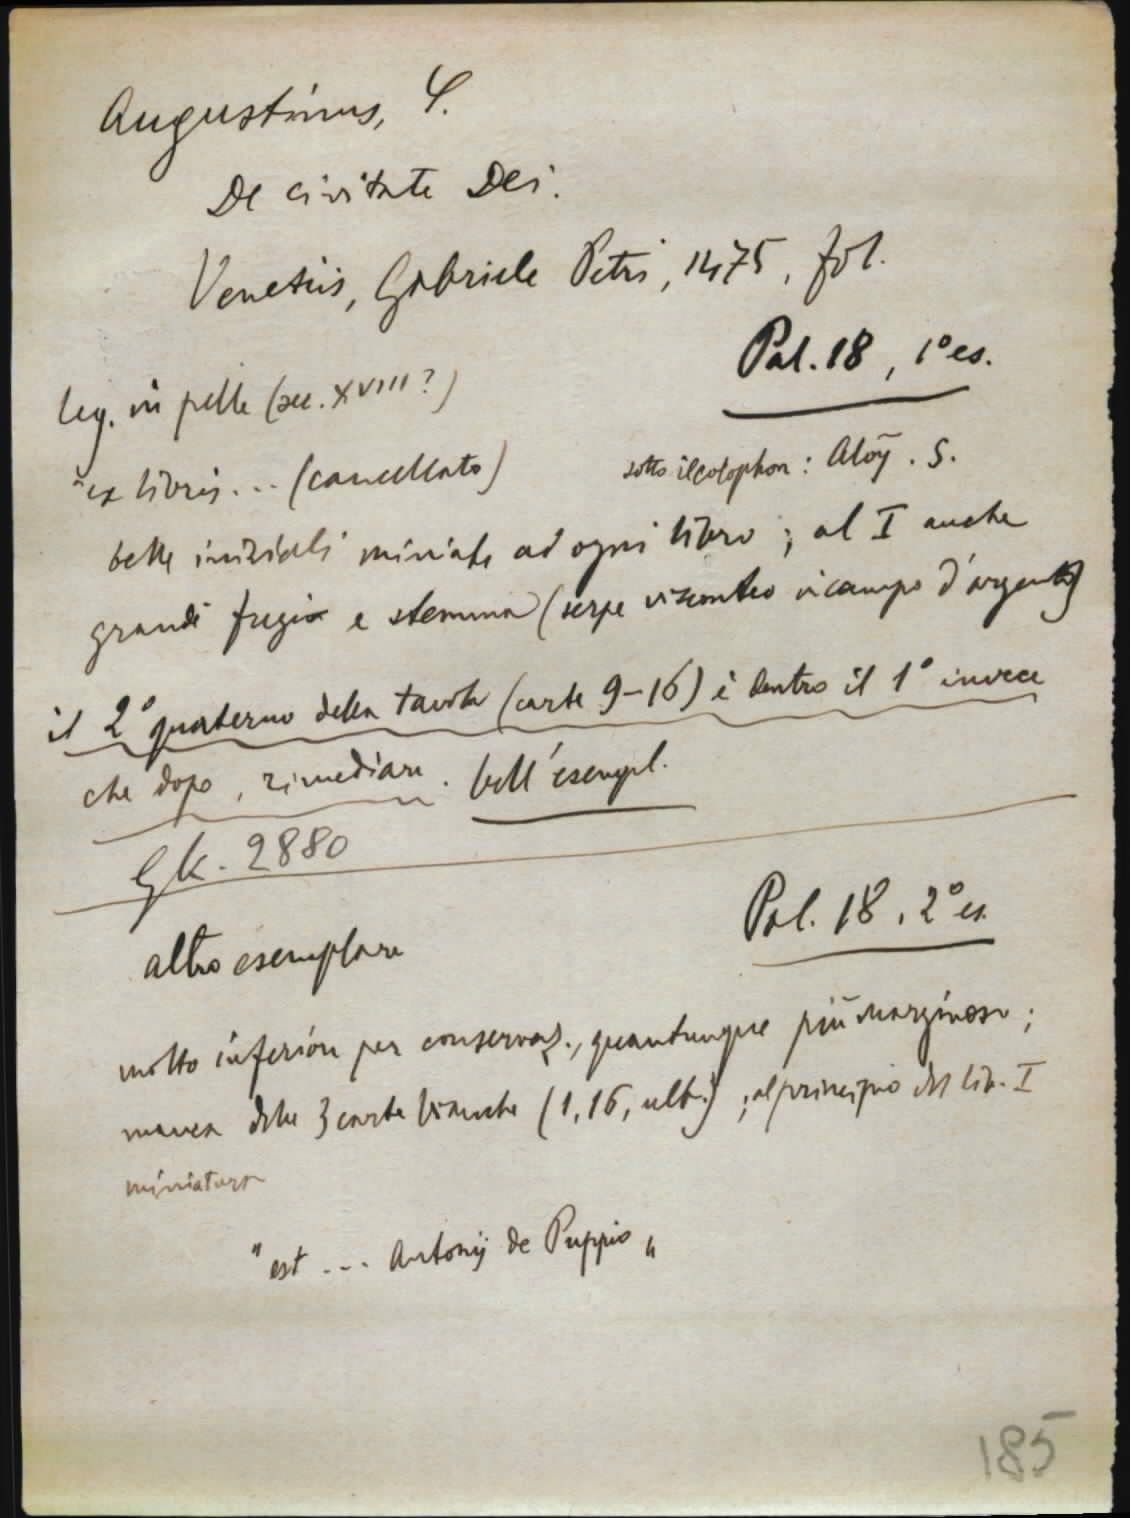 Augustinus, S.
De civitate Dei.
Venetiis, Gabriele Petri, 1475, fol.
Pal. 18, 1° es.
leg. in pelle (sec. XVIII?)
"ex libris... (cancellato)
sotto il colophon: Aloỹ. S.
belle iniziali miniate ad ogni libro; al I anche
grandi fregi e stemma (serpe visconteo in campo d'argento)
il 2° quaterno della tavola (carte 9-16) è dentro il 1° invece
che dopo, rimediare. bell'esempl.
GK. 2880
Pal. 18, 2° es.
altro esemplare
molto inferiore per conservaz., quantunque più marginoso;
manca delle 3 carte bianche (1, 16, ult.); al principio del lib. I
miniatura
"est ... Antonij de Puppio"
185